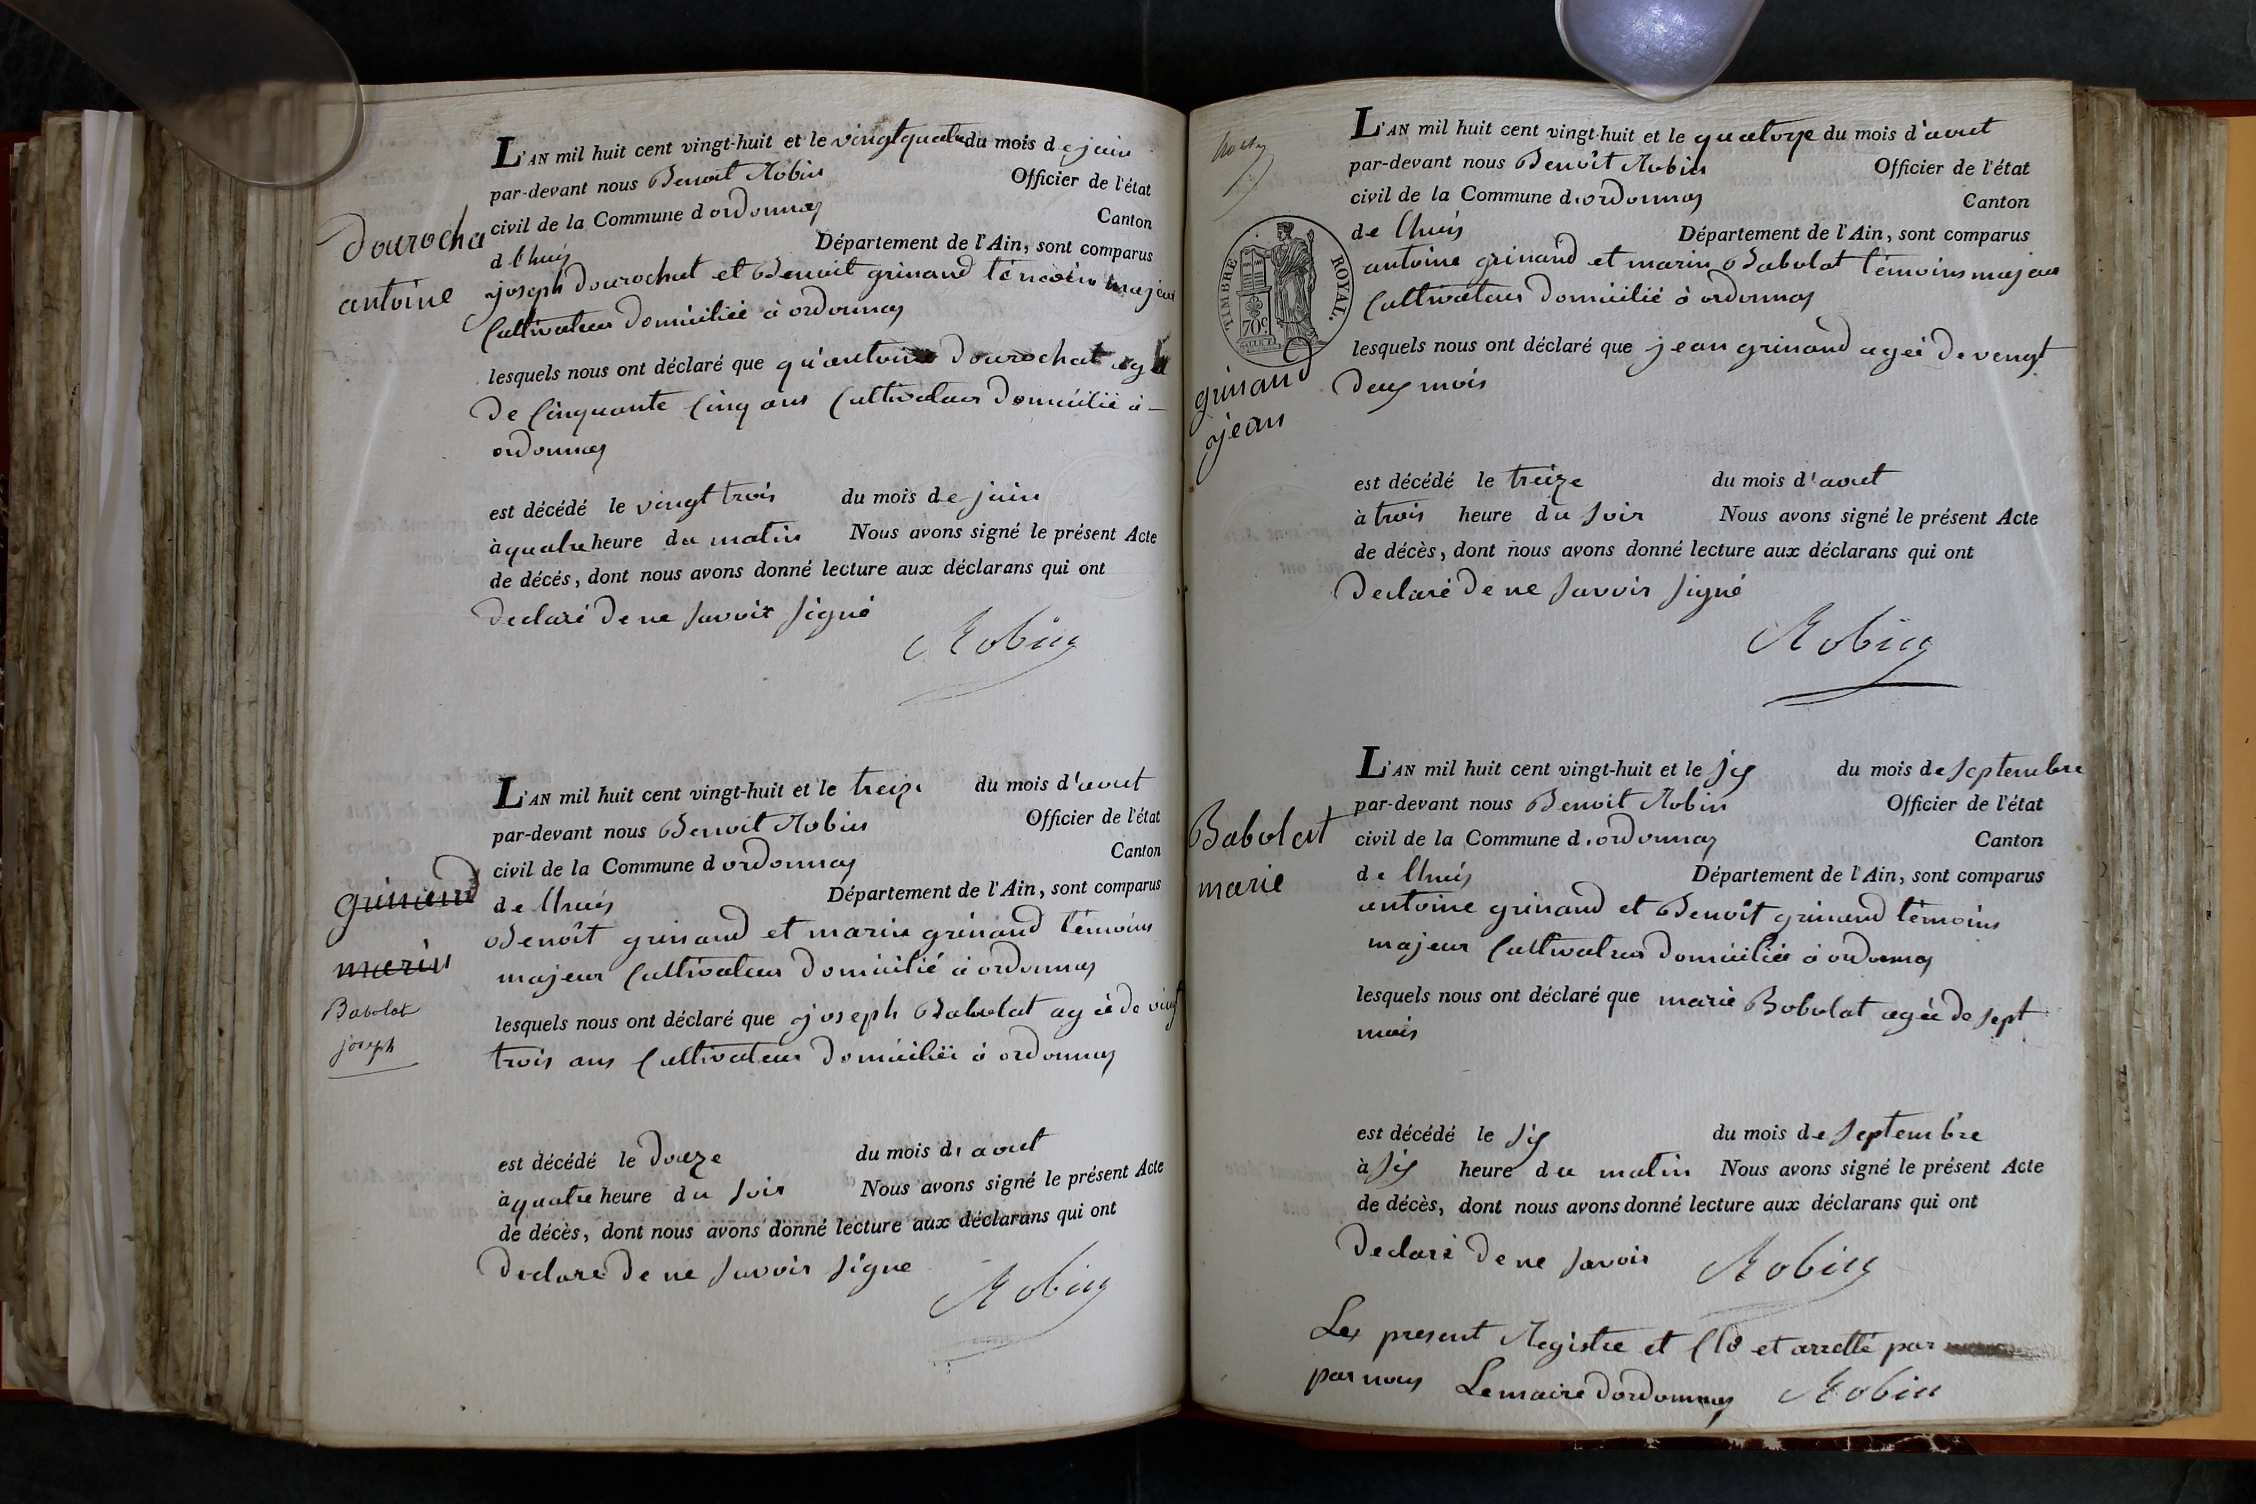 L'AN mil huit cent vingt-huit et le vingtquatre du mois de juin
par-devant nous Benoit Robin Officier de l'état
civil de la Commune d ordonnas Canton
d lhuis Département de l'Ain, sont comparus
joseph dourochat et Benoit grinand témoins majeur
Cultivateur domicilié à ordonnas
lesquels nous ont déclaré que qu'antoine dourochat agé
de Cinquante Cinq ans Cultivateur domicilié à
ordonnas
est décédé le vingt trois du mois de juin
à quatre heure du matin Nous avons signé le présent Acte
de décés, dont nous avons donné lecture aux déclarans qui ont
declaré de ne savoir signé
Robin
dourocha
antoine
L'AN mil huit cent vingt-huit et le treize du mois d'aout
par-devant nous Benoit Robin Officier de l'état
civil de la Commune d ordonnas Canton
de lhuis Département de l'Ain, sont comparus
Benoît grinand et marin grinand témoins
majeur Cultivateur domicilié à ordonnas
lesquels nous ont déclaré que joseph Babolat agée de vingt
trois ans Cultivateur domicilié à ordonnas
est décédé le douze du mois d'aout
à quatre heure du soir Nous avons signé le présent Acte
de décès, dont nous avons donné lecture aux déclarans qui ont
declare de ne savoir signe
Robin
grinand
marin
Babolat
joseph
TIMBRE ROYAL.
70c
L'AN mil huit cent vingt-huit et le quatorze du mois d'aout
par-devant nous Benoît Robin Officier de l'état
civil de la Commune d'ordonnas Canton
de lhuis Département de l'Ain, sont comparus
antoine grinand et marin Babolat témoins majeur
Cultivateur domicilié à ordonnas
lesquels nous ont déclaré que jean grinand agée de vengt
deux mois
est décédé le treize du mois d'aout
à trois heure du soir Nous avons signé le présent Acte
de décès, dont nous avons donné lecture aux déclarans qui ont
declaré de ne savoir signé
Robin
grinand
jean
L'AN mil huit cent vingt-huit et le six du mois de septembre
par-devant nous Benoit Robin Officier de l'état
civil de la Commune d'ordonnas Canton
de lhuis Département de l'Ain, sont comparus
antoine grinand et Benoît grinand témoins
majeur Cultivateur domicilié à ordonnas
lesquels nous ont déclaré que marie Bobolat agée de sept
mois
est décédé le six du mois de septembre
à six heure du matin Nous avons signé le présent Acte
de décès, dont nous avons donné lecture aux déclarans qui ont
declaré de ne savoir Robin
Les present Registre et Clo et arretté par
par nous Le maire dordonnas Robin
Babolat
marie